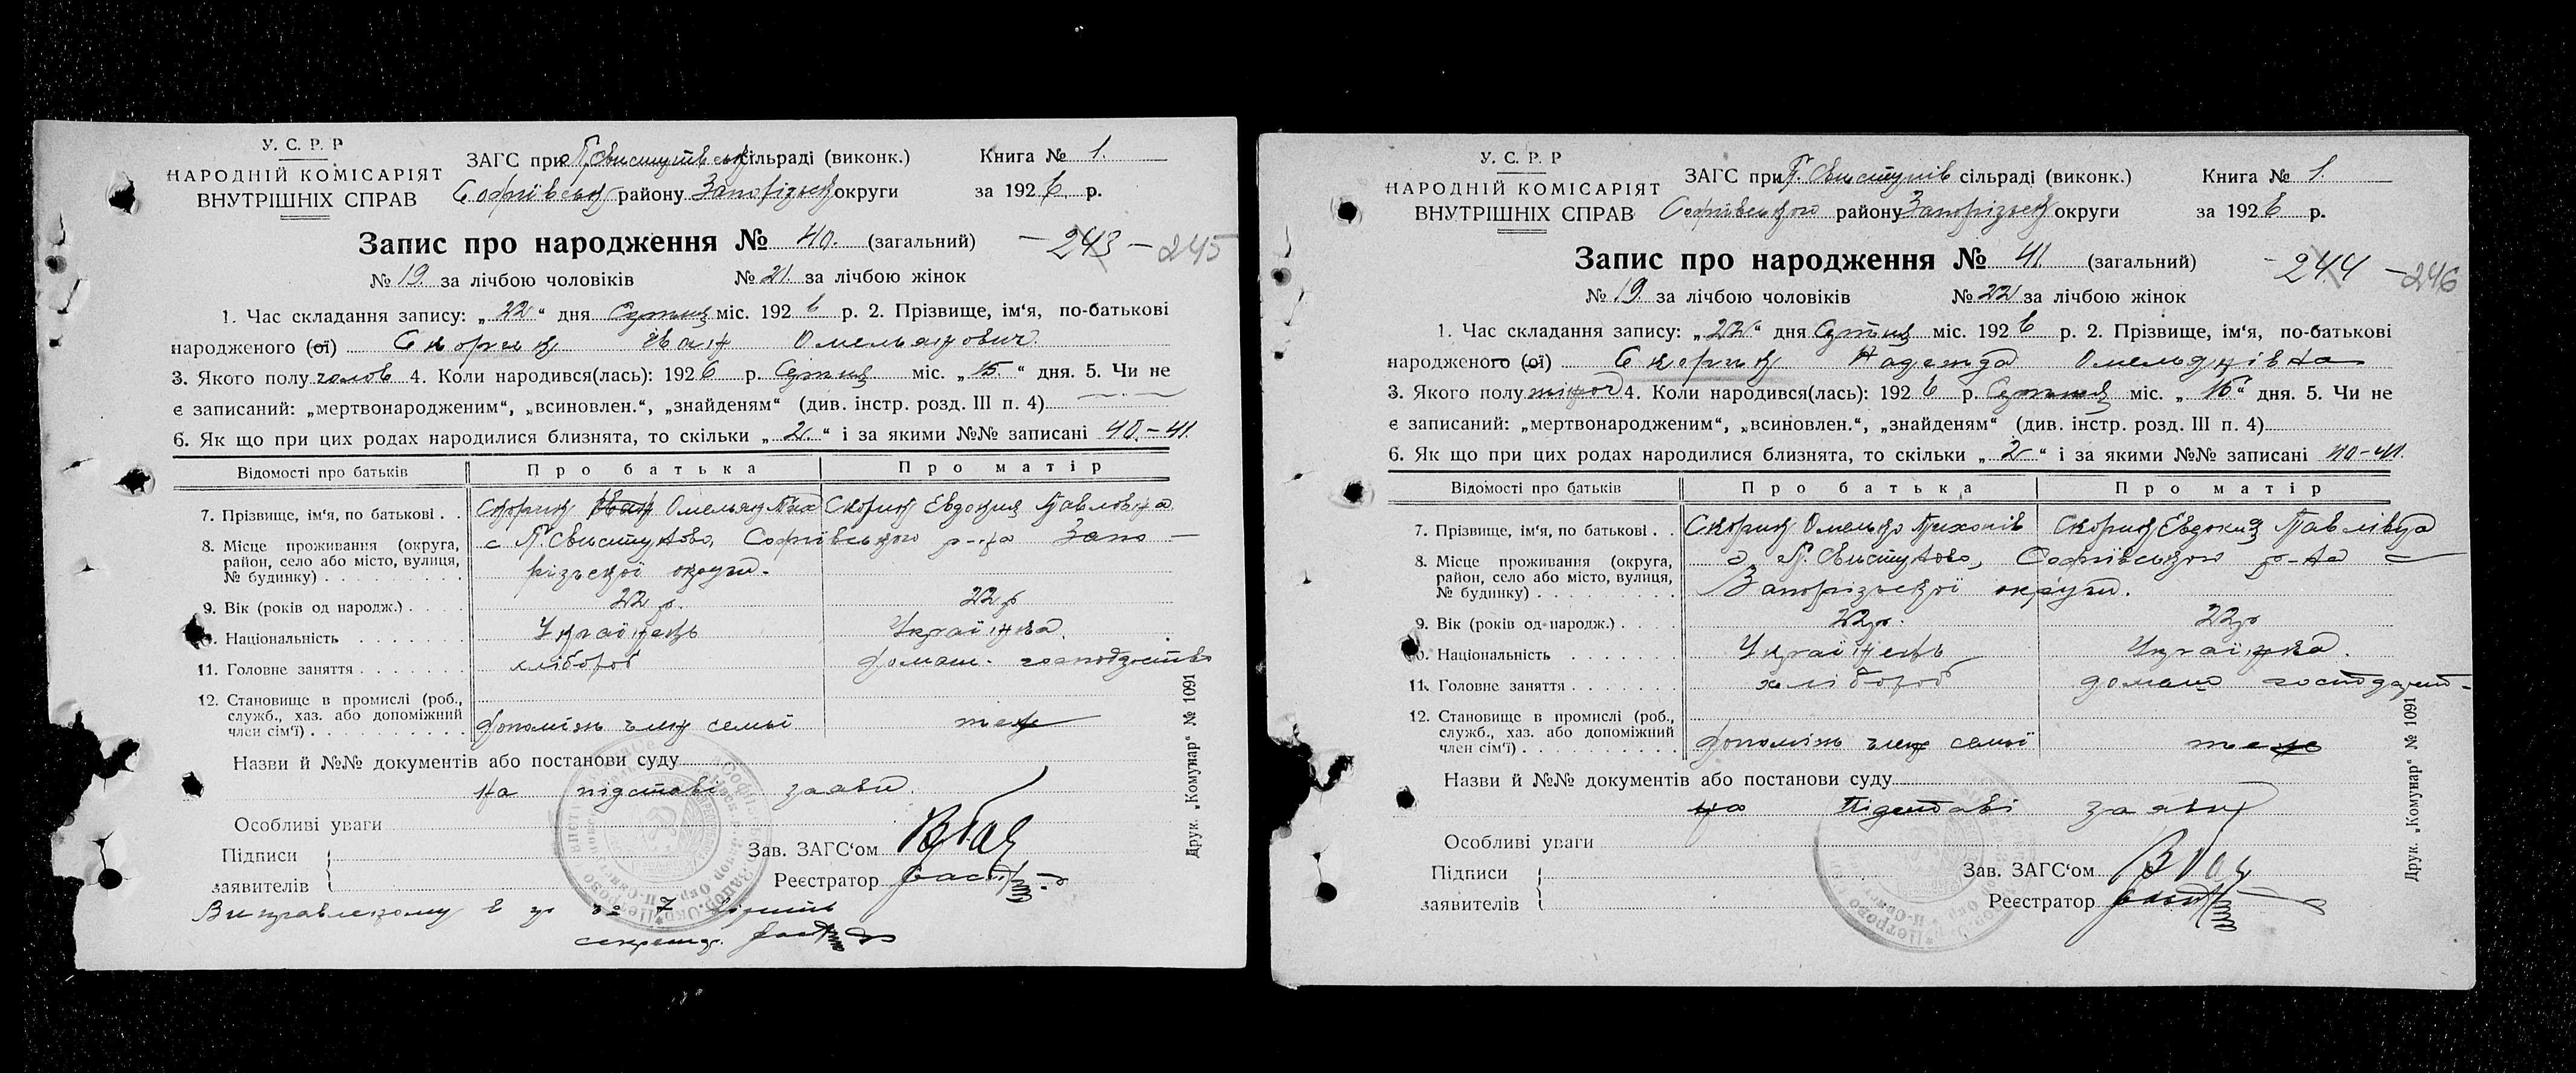 У. С. Р. Р
НАРОДНІЙ КОМІСАРІЯТ
ВНУТРІШНІХ СПРАВ
ЗАГС при П. Свистунівськ сільраді (виконк.)
Софіївськ району Запорізьк округи
Книга № 1.
за 1926 р.
Запис про народження № 40. (загальний)
243 – 245
№ 19. за лічбою чоловіків № 21. за лічбою жінок
1. Час складання запису: „22“ дня Січня міс. 1926 р. 2. Прізвище, ім‘я, по-батькові
народженого (ої) Скорик Іван Омельянович
3. Якого полу чолов 4. Коли народився(лась): 1926 р. Січня міс. „15.“ дня. 5. Чи не
є записаний: „мертвонародженим“, „всиновлен.“, „знайденям“ (див. інстр. розд. III п. 4)
6. Як що при цих родах народилися близнята, то скільки „2.“ і за якими №№ записані 40.–41.
Відомості про батьків Про батька Про матір
7. Прізвище, ім‘я, по батькові . . Скорик Іван Омельян Тих Скорик Евдокия Павловна
8. Місце проживання (округа, район, село або місто, вулиця, № будинку) с П. Свистуново, Софіївського р-на Запо-
різької округи.
9. Вік (років од народж.) 22 р. 22 р
10. Національність Українець Українка.
11. Головне заняття хлібороб домаш. господарство
12. Становище в промислі (роб., служб., хаз. або допоміжний член сім‘ї) допоміж член семьі теж
Назви й №№ документів або постанови суду
на підставі заяви.
Особливі уваги
Підписи
заявителів
Зав. ЗАГС‘ом
Реєстратор
Виправленому в гр № 7 вірить
секретар.
Друк. „Комунар“ № 1091
У. С. Р. Р
НАРОДНІЙ КОМІСАРІЯТ
ВНУТРІШНІХ СПРАВ
ЗАГС при П. Свистунів сільраді (виконк.)
Софіївського району Запорізьк округи
Книга № 1.
за 1926 р.
Запис про народження № 41. (загальний)
244 – 246
№ 19. за лічбою чоловіків № 22 за лічбою жінок
1. Час складання запису: „22“ дня Січня міс. 1926 р. 2. Прізвище, ім‘я, по-батькові
народженого (ої) Скорик Надежда Омельянівна
3. Якого полу жіноч 4. Коли народився(лась): 1926 р. Січня міс. „15“ дня. 5. Чи не
є записаний: „мертвонародженим“, „всиновлен.“, „знайденям“ (див. інстр. розд. III п. 4)
6. Як що при цих родах народилися близнята, то скільки „2“ і за якими №№ записані 40–41.
Відомості про батьків Про батька Про матір
7. Прізвище, ім‘я, по батькові . . Скорик Омелько Тихонів Скорик Евдокия Павлівна
8. Місце проживання (округа, район, село або місто, вулиця, № будинку) с П. Свистуново, Софіївського р-на
Запорізької округи.
9. Вік (років од народж.) 22 р. 22 р
10. Національність Українець Українка.
11. Головне заняття хлібороб домаш господарст-
12. Становище в промислі (роб., служб., хаз. або допоміжний член сім‘ї) допоміж член семьї теж
Назви й №№ документів або постанови суду
на підставі заяви
Особливі уваги
Підписи
заявителів
Зав. ЗАГС‘ом
Реєстратор
Друк. „Комунар“ № 1091